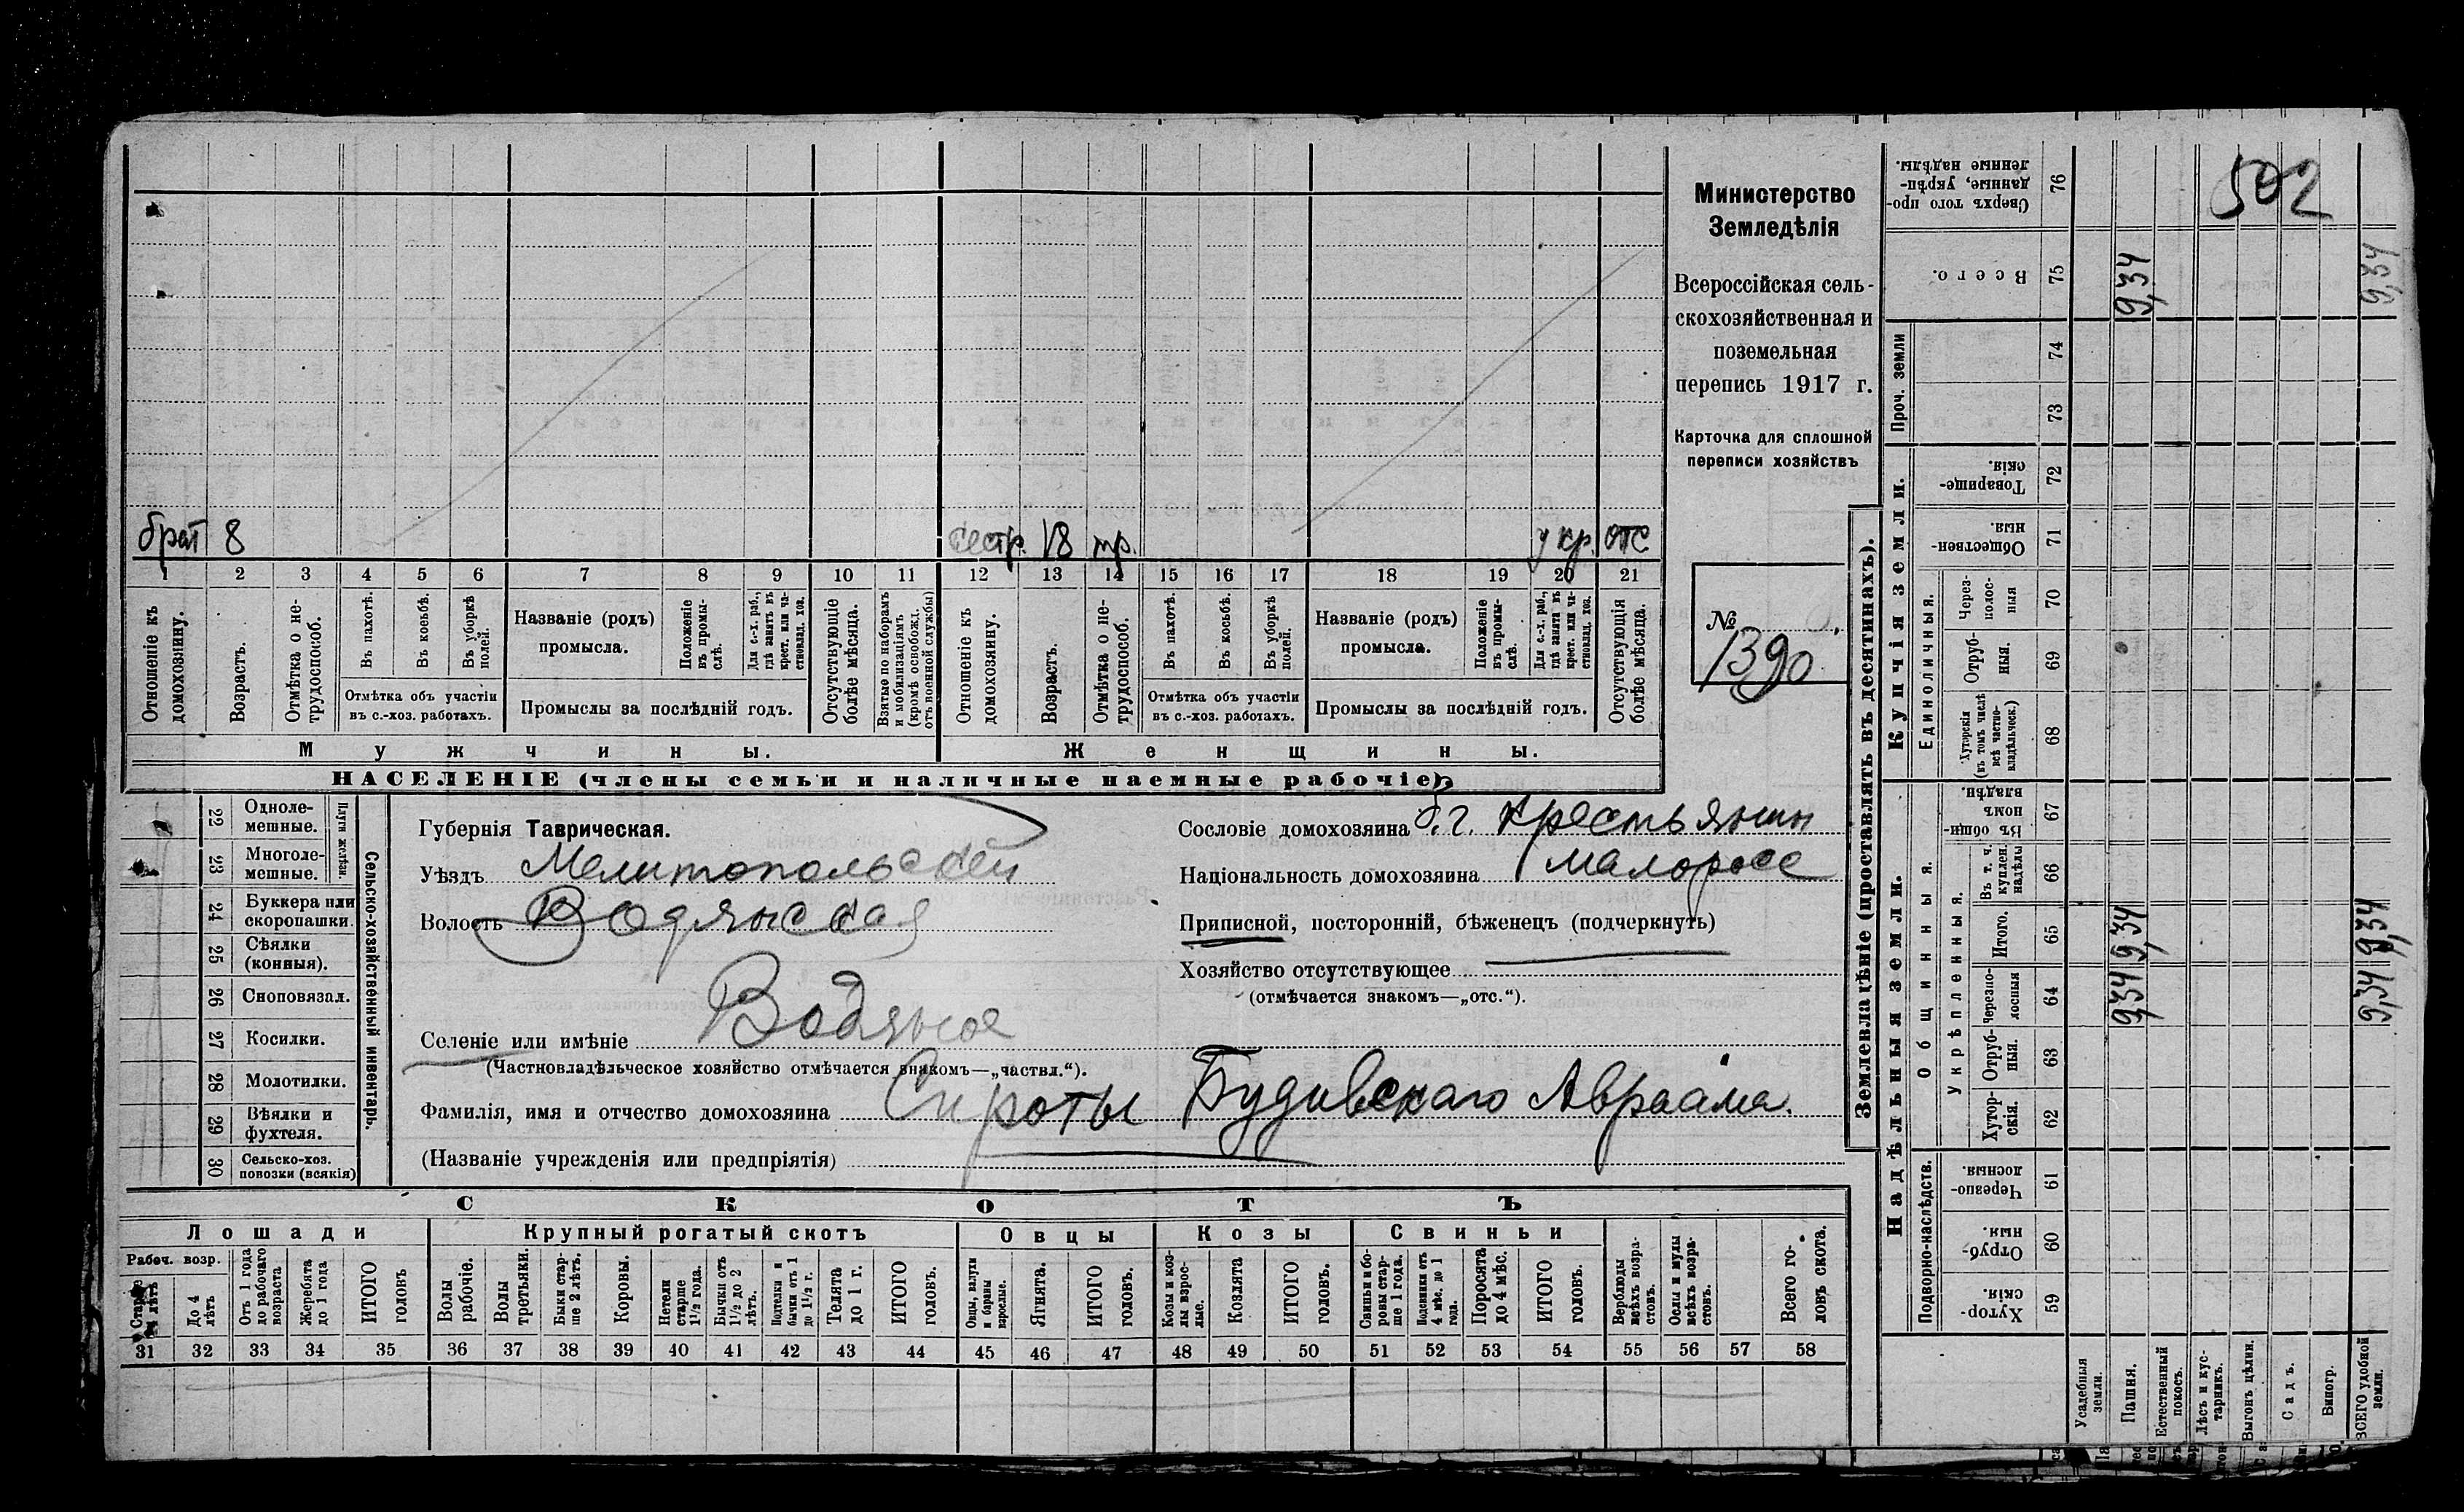 брат 8 сестр. 18 тр. у кр. отс
1 2 3 4 5 6 7 8 9 10 11 12 13 14 15 16 17 18 19 20 21
Отношеніе къ домохозяину.
Возрастъ.
Отмѣтка о не-
трудоспособ.
Въ пахотѣ.
Въ косьбѣ.
Въ уборкѣ
полей.
Отмѣтка объ участіи
въ с.-хоз. работахъ.
Названіе (родъ)
промысла.
Положеніе
въ промы-
слѣ.
Для с.-х. раб.,
гдѣ занятъ въ
крест. или ча-
стновлад. хоз.
Промыслы за послѣдній годъ.
Отсутствующіе
болѣе мѣсяца.
Взятые по наборамъ
и мобилизаціямъ
(кромѣ освобожд.
отъ военной службы)
Отношеніе къ
домохозяину.
Возрастъ.
Отмѣтка о не-
трудоспособ.
Въ пахотѣ.
Въ косьбѣ.
Въ уборкѣ
полей.
Отмѣтка объ участіи
въ с.-хоз. работахъ.
Названіе (родъ)
промысла.
Положеніе
въ промы-
слѣ.
Для с.-х. раб.,
гдѣ занята въ
крест. или ча-
стновлад. хоз.
Промыслы за послѣдній годъ.
Отсутствующія
болѣе мѣсяца.
Мужчины.
Женщины.
НАСЕЛЕНІЕ (члены семьи и наличные наемные рабочіе).
Министерство
Земледѣлія
Всероссійская сель-
скохозяйственная и
поземельная
перепись 1917 г.
Карточка для сплошной
переписи хозяйствъ
№
1390
22 Одноле-
мешные.
23 Многоле-
мешные.
Плуги желѣзн.
24 Буккера или
скоропашки.
25 Сѣялки
(конныя).
26 Сноповязал.
27 Косилки.
28 Молотилки.
29 Вѣялки и
фухтеля.
30 Сельско-хоз.
повозки (всякія)
Сельско-хозяйственный инвентарь.
Губернія Таврическая.
Уѣздъ Мелитопольский
Волость Водянская
Селеніе или имѣніе Водяное
(Частновладѣльческое хозяйство отмѣчается знакомъ—„частвл.“).
Фамилія, имя и отчество домохозяина Сироты Будивскаго Авраама.
(Названіе учрежденія или предпріятія)
Сословіе домохозяина б.г. Крестьянин
Національность домохозяина малоросс
Приписной, посторонній, бѣженецъ (подчеркнуть)
Хозяйство отсутствующее
(отмѣчается знакомъ—„отс.“).
СКОТЪ
Лошади
Крупный рогатый скотъ
Овцы
Козы
Свиньи
Рабоч. возр.
До 4
лѣтъ
Отъ 1 года
до рабочаго
возраста
Жеребята
до 1 года
ИТОГО
головъ
Волы
рабочіе.
Волы
третьяки.
Быки стар-
ше 2 лѣтъ.
Коровы.
Нетели
старше
1½ года.
Бычки отъ
1½ до 2
лѣтъ.
Подтелки и
бычки отъ 1
до 1½ г.
Телята
до 1 г.
ИТОГО
головъ.
Овцы, валухи
и бараны
взрослые.
Ягнята.
ИТОГО
головъ.
Козы и коз-
лы взрос-
лые.
Козлята
ИТОГО
головъ.
Свиньи и бо-
ровы стар-
ше 1 года.
Подсвинки отъ
4 мѣс. до 1
года.
Поросята
до 4 мѣс.
ИТОГО
головъ.
Верблюды
всѣхъ возра-
стовъ.
Ослы и мулы
всѣхъ возра-
стовъ.
Всего го-
ловъ скота.
31 32 33 34 35 36 37 38 39 40 41 42 43 44 45 46 47 48 49 50 51 52 53 54 55 56 57 58
Землевладѣніе (проставлять въ десятинахъ).
Надѣльныя земли.
Купчія земли.
Проч. земли
Подворно-наслѣдств.
Общинныя.
Укрѣпленныя.
Единоличныя.
Хутор-
скія. 59
Отруб-
ныя 60
Черезпо-
лосныя. 61
Хутор-
скія. 62
Отруб-
ныя. 63
Черезпо-
лосныя 64
Итого. 65
Въ т. ч.
куплен.
надѣлы 66
Въ общин-
номъ
владѣн. 67
Хуторскія
(въ томъ числѣ
всѣ частно-
владѣльческ.) 68
Отруб-
ныя. 69
Через-
полос-
ныя 70
Обществен-
ныя. 71
Товарище-
скія. 72
73
74
Всего. 75
Сверхъ того про-
данные, укрѣп-
ленные надѣлы. 76
Усадебныя
земли.
Пашня. 9,34 9,34 9,34
Естественный
покосъ.
Лѣсъ и кус-
тарникъ.
Выгонъ цѣлин.
Садъ.
Виногр.
ВСЕГО удобной
земли. 9,34 9,34 9,34
502